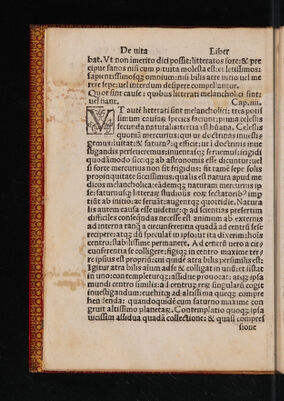 De uita Liber
bat. Vt non imerito dici possit: litteratos fore: & pre
cipue sanos nisi cum pituita molesta est: et letissimos:
sapientissimosq; omnium: nisi bilis atre uitio uel me
rere sepe: uel interdum desipere compellantur.
Quot sint cause: quibus litterati melancholici sint:
uel fiant. Cap. iiii.
VT autē litterati sint melancholici: tres potis
simum causaꝝ species faciunt: prima celestis
secunda naturalis: tertia est hūana. Celestis
quonia mercurius: qui ut doctrinas inuesti
gemus: iuitat: & saturnꝰ: q efficit: ut ī doctrinis inue
stigandis perseueremus: inuentasq; seruemus: frigidi
quodāmodo siccīq; ab astronomis esse dicuntur: uel
si forte mercurius non sit frigidus: fit tamē sepe solis
propinquitate siccissimus: qualis est natura apud me
dicos melancholica: eādemq; naturam mercurius ip
se: saturnusq; litteraꝝ studiosis eoꝝ sectatoribꝰ imp
tiunt ab initio: ac seruāt: augentq; quottidie. Natura
lis autem causa eē uidetur: ꝙ ad scientias presertim
difficiles consequēdas necesse est animum ab externis
ad interna tanq̄ a circunferentia quadā ad centrū sese
recipere: atq; dū speculatur in ipso: ut ita dixerim hoīs
centro: stabilissime permanere. Ad centrū uero a cir;
cunferentia se colligere: figiq; in centro maxime ter
re ipsius est proprium: cui quidē atra bilis persimilis est:
Igitur atra bilis animū adsē & colligat in unū: et sistat
in uno: contempletur q;: assidue prouocat: atq; ipsa
mundi centro similis: ad centrū reꝝ singularū cogit
inuestigandū: euehitq; ad altissima queq; compre
hendenda: quandoquidē cum saturno maxime con
gruit altissimo planetaꝝ. Contemplatio quoq; ipsa
uicissim assidua quadā collectione: & quasi compres
sione